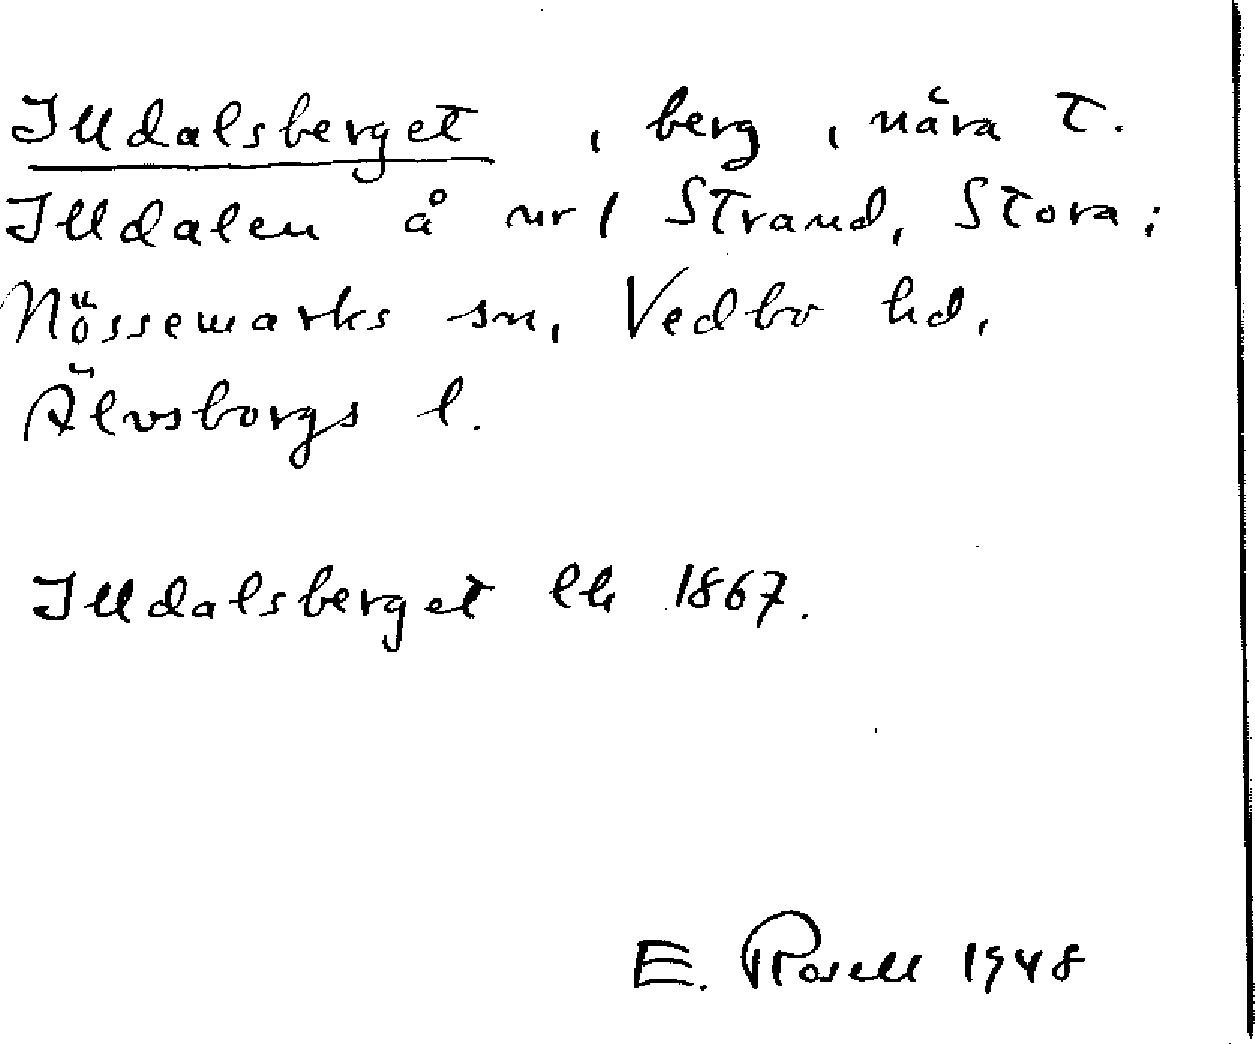 Illdalsberget, berg, nära T.
Illdalen å nr 1 Strand, Stora i
Nössemarks sn, Vedbo hd,
Älvsborgs l.
Illdalsberget lh 1867.
E. Rosell 1948